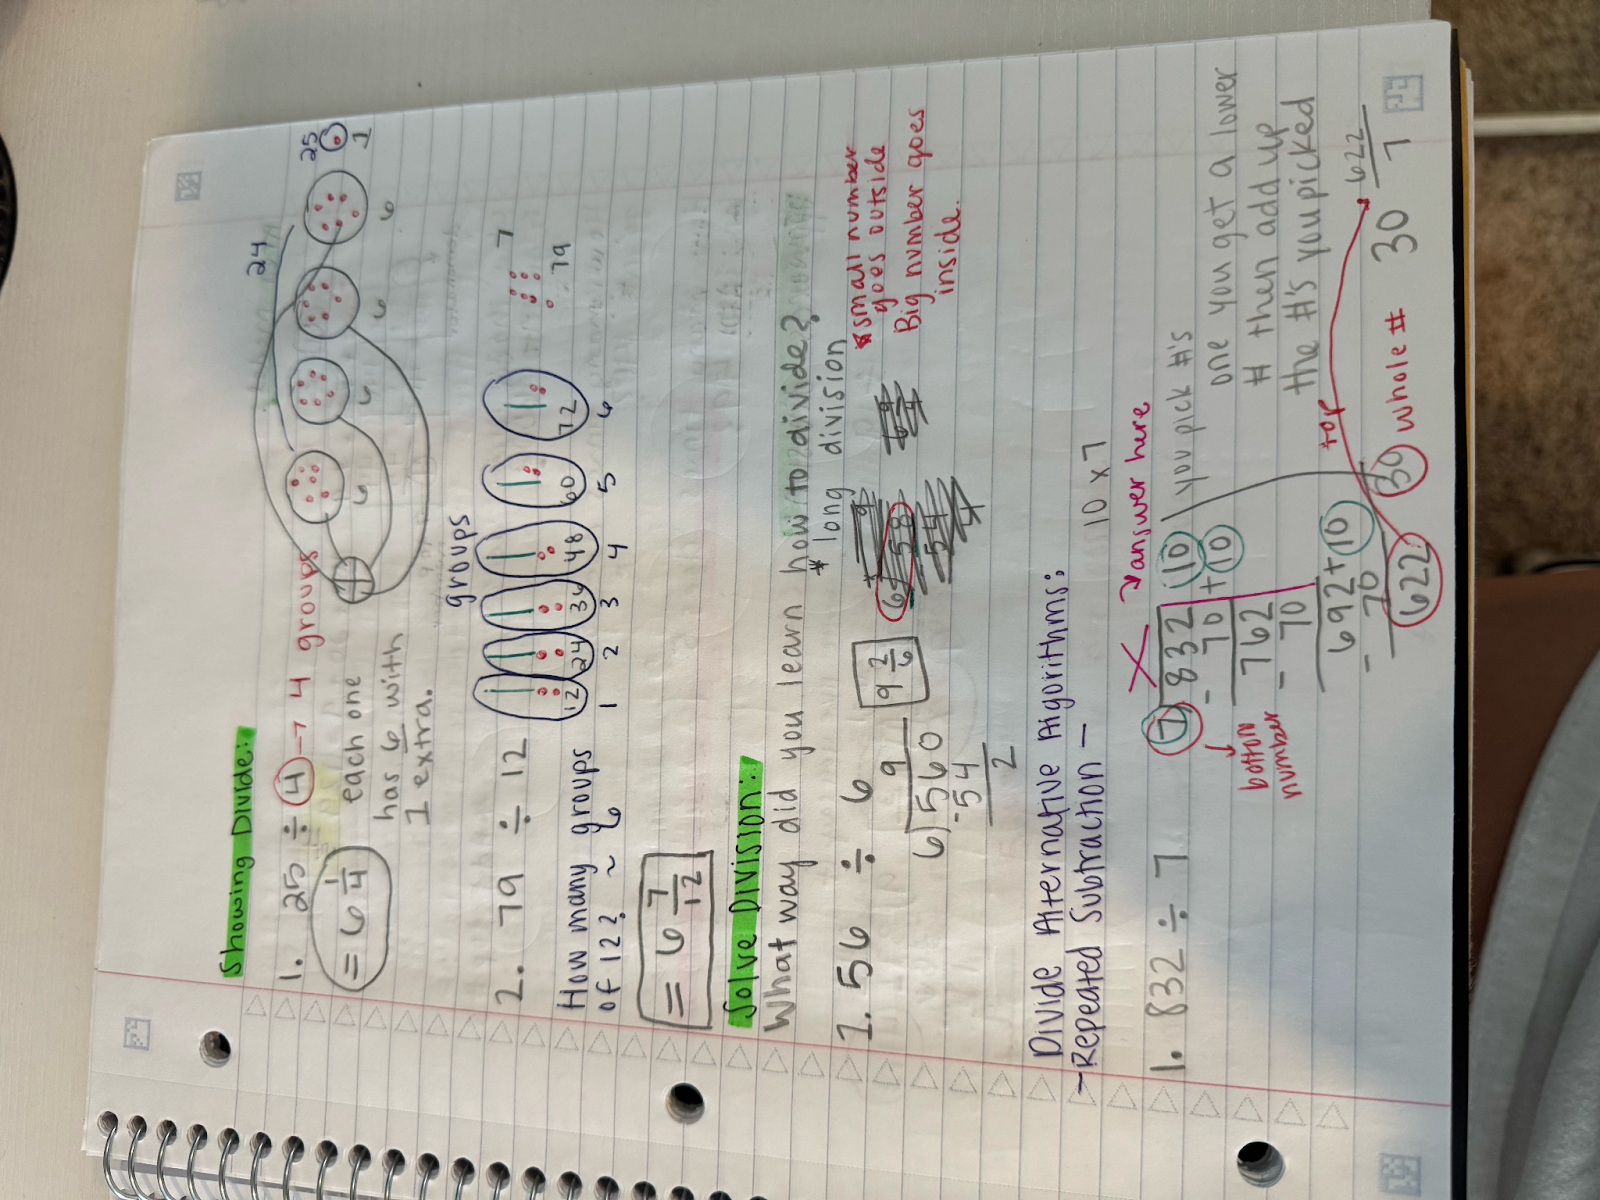 Showing Divide:
1. 25 ÷ 4 → 4 groups
= 6 1/4
each one
has 6 with
1 extra.
24
25
6 6 6 6 1
2. 79 ÷ 12
groups
12 24 34 48 60 72
1 2 3 4 5 6
7
79
How many groups
of 12? ~ 6
= 6 7/12
Solve Division:
What way did you learn how to divide?
* long division
1. 56 ÷ 6
9 2/6
9
6)560
-54
2
9
6 58
54
4
*small number
goes outside
Big number goes
inside.
Divide Alternative Algorithms:
- Repeated Subtraction -
10 x 7
1. 832 ÷ 7
→ answer here
7 832 (10) you pick #'s
- 70 + 10
762
- 70
692 + 10
- 70
622
30 whole #
bottom
number
one you get a lower
# then add up
the #'s you picked
top
30 622/7